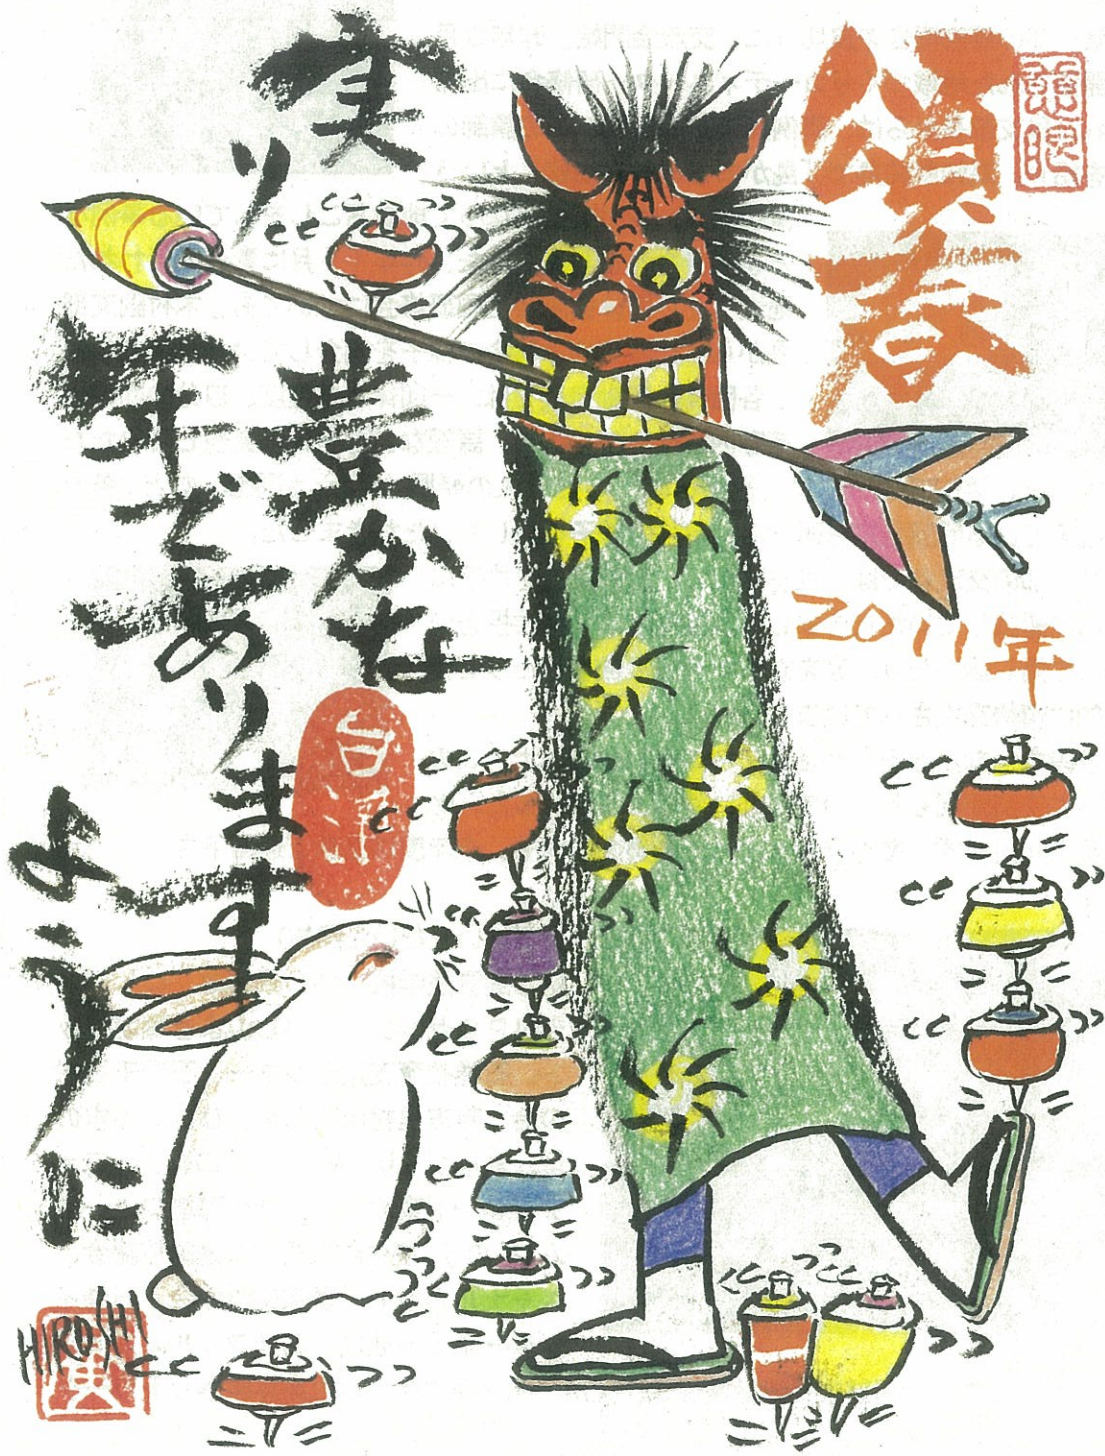 頌春
2011年
実り
豊かな
年であります
ように
HIROSHI